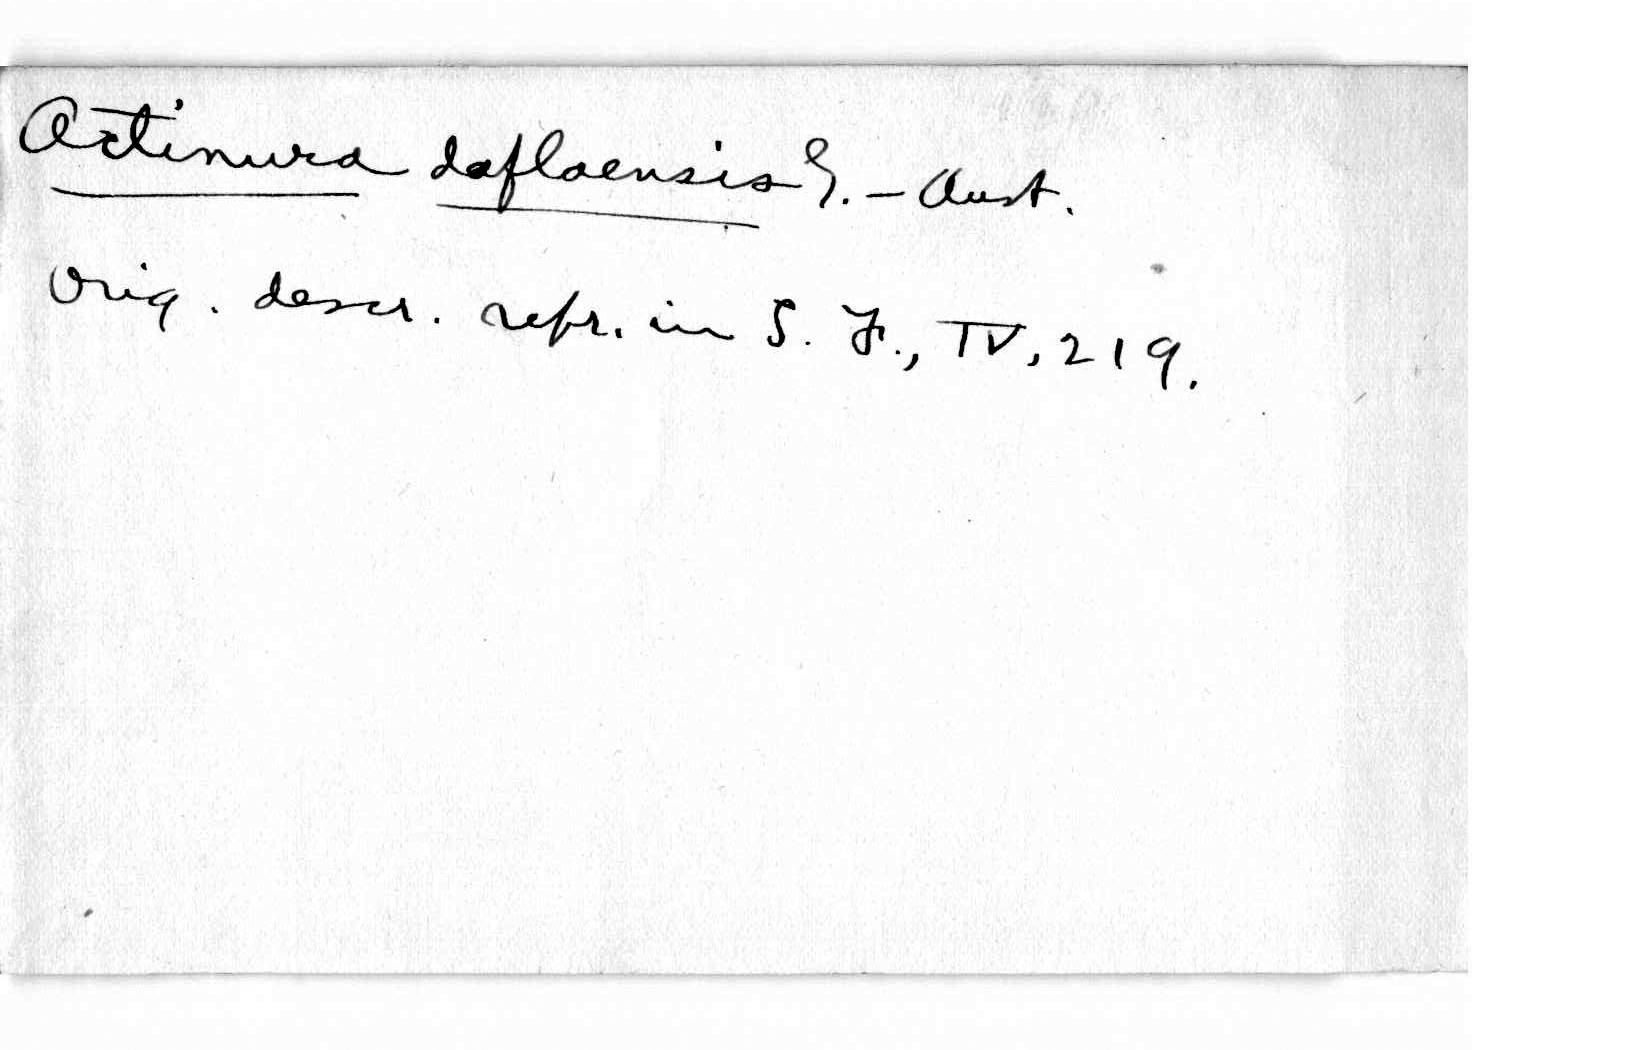 Actinura daflaensis G.-Aust.
Orig. descr. repr. in S. F., IV, 219.